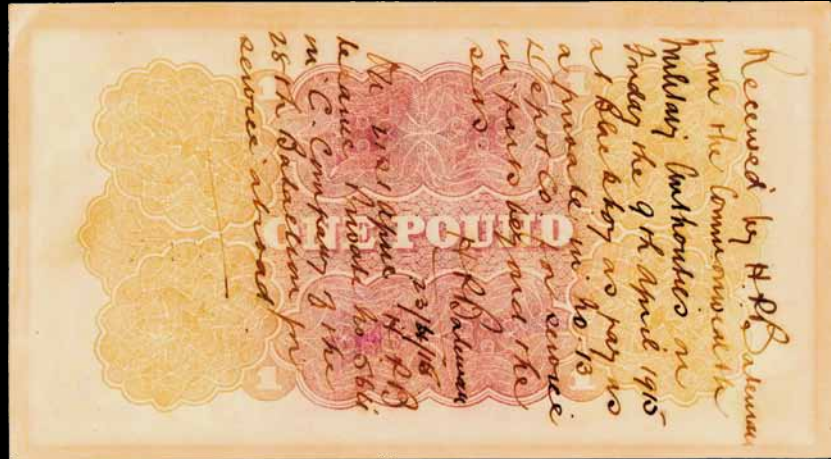 Received by H.R. Bateman
from the Commonwealth
Military Authorities on
Friday the 9th April 1915
at Blackboy as pay as
a private in No 13
Depot Co on service
in parts beyond the
seas
H R Bateman
23/4/15
On 21st April H.R.B
became Private No
in "C. Company of the
28th Batallion for
service abroad
ONE POUND
1
1
1
1